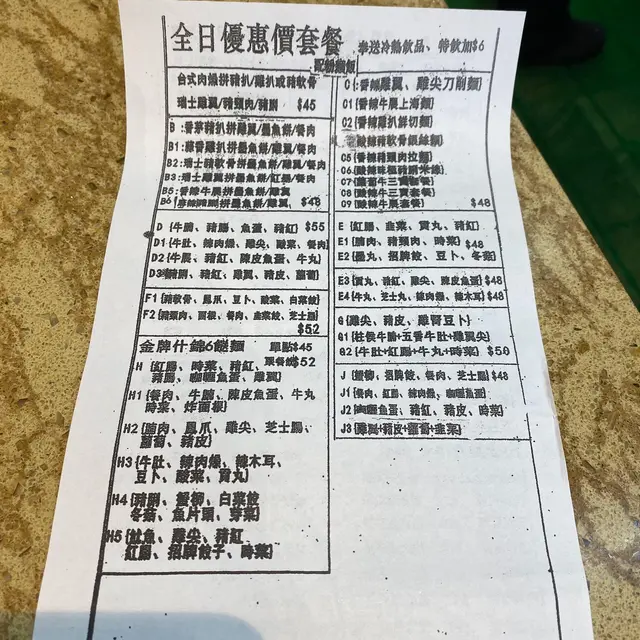 全日優惠價套餐 奉送冷熱飲品、特飲加$6
配麵類類
台式肉燥拼豬扒/雞扒或豬軟骨
瑞士雞翼/豬頸肉/豬腩 $45
B :香茅豬扒拼雞翼/墨魚餅/餐肉
B1:蒜香雞扒拼墨魚餅/雞翼/餐肉
B2:瑞士豬軟骨拼墨魚餅/雞翼/餐肉
B3:瑞士雞翼拼墨魚餅/紅腸/餐肉
B5:香辣牛展拼墨魚餅/雞翼
B6 $48
D {牛腩、豬腸、魚蛋、豬紅} $55
D1{牛肚、辣肉燥、雞尖、酸菜、餐肉
D2{牛展、雲耳、陳皮魚蛋、牛丸}
D3 、豬紅、雞翼、豬皮、蘿蔔}
F1{豬軟骨、鳳爪、豆卜、酸菜、白菜餃}
F2{豬頸肉、面根、餐肉、韭菜餃、芝士腸}
$52
金牌什錦6餸麵 單點$45
跟餐飲$52
H {紅腸、時菜、豬紅、
豬腸、咖喱魚蛋、雞翼}
H1{餐肉、牛腩、陳皮魚蛋、牛丸
時菜、炸面根}
H2{腩肉、鳳爪、雞尖、芝士腸、
蘿蔔、豬皮}
H3{牛肚、辣肉燥、辣木耳、
豆卜、酸菜、貢丸}
H4{豬腩、蟹柳、白菜餃
冬菇、魚片頭、芽菜}
H5{魷魚、雞尖、豬紅
紅腸、招牌餃子、時菜}
O {香辣雞翼、雞尖刀削麵}
O1{香辣牛展上海麵}
O2{香辣雞扒鮮切麵}
{酸辣豬軟骨銀絲麵}
O5{香辣豬頸肉拉麵}
O6
O7
O8{酸辣牛三寶套餐}
O9{酸辣牛展套餐} $48
E {紅腸、韭菜、貢丸、豬紅}
E1{腩肉、豬頸肉、時菜} $48
E2{墨丸、招牌餃、豆卜、冬菇}
E3{貢丸、豬紅、雞尖、陳皮魚蛋} $48
E4{牛丸、芝士丸、辣肉燥、辣木耳} $48
G {雞尖、豬皮、雞腎豆卜}
G1{柱侯牛腩+五香牛肚+雞翼尖}
G2{牛肚+紅腸+牛丸+時菜} $50
J {蟹柳、招牌餃、餐肉、芝士腸} $48
J1{餐肉、紅腸、辣肉燥、咖喱魚蛋}
J2{咖喱魚蛋、豬紅、豬皮、時菜}
J3{雞翼+豬皮+蘿蔔+韭菜}